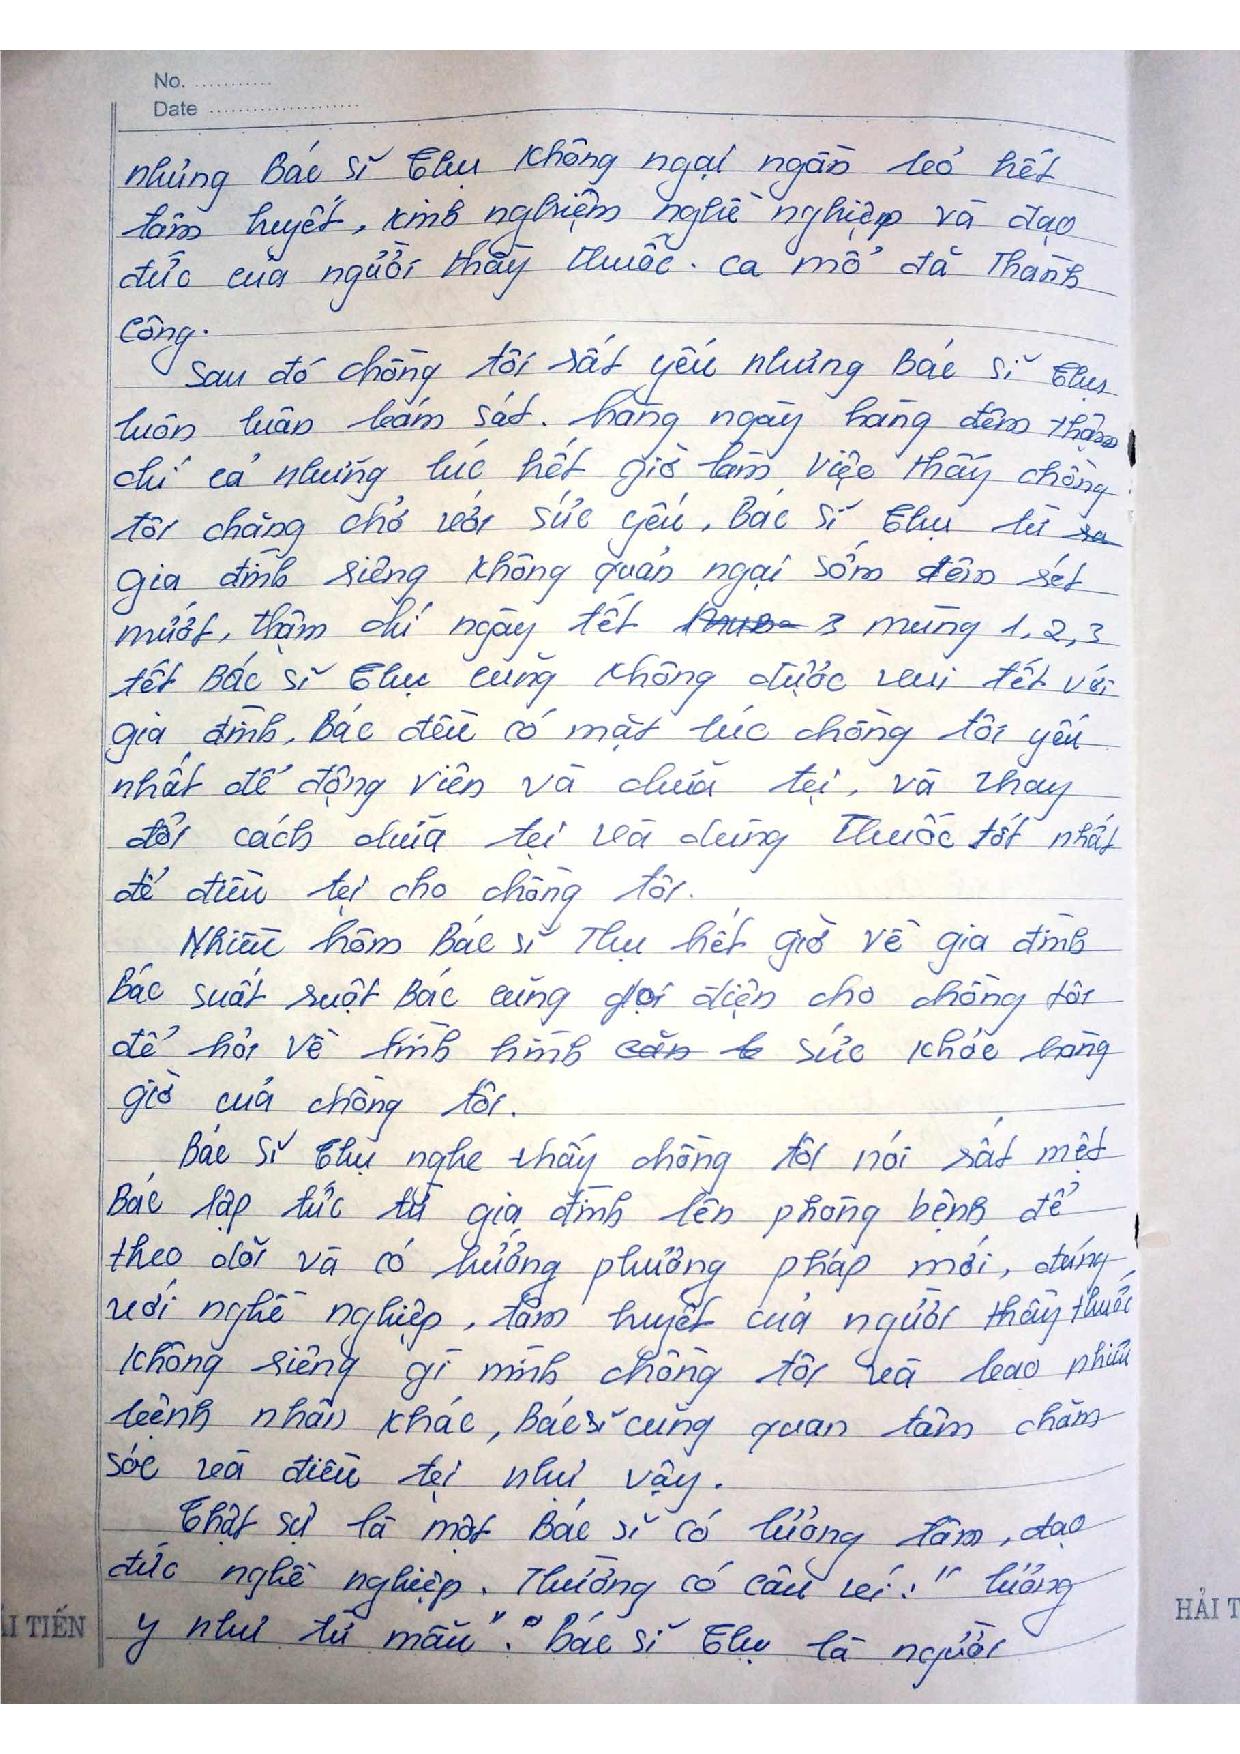 No. ............
Date .....................
nhưng Bác sĩ Thụ không ngại ngần bỏ hết
tâm huyết, kinh nghiệm nghề nghiệp và đạo
đức của người thầy thuốc. ca mổ đã Thành
Công.
Sau đó chồng tôi rất yếu nhưng Bác sĩ Thụ
luôn luân bám sát. hàng ngày hàng đêm thậm
chí cả những lúc hết giờ làm việc thấy chồng
tôi chăng chở với sức yếu, Bác sĩ Thụ từ
gia đình riêng không quản ngại sớm đêm rét
mướt, thậm chí ngày tết 3 mùng 1,2,3
tết Bác sĩ Thụ cũng không được vui tết với
gia đình, Bác đều có mặt lúc chồng tôi yếu
nhất để động viên và chữa tẹi, và Thay
đổi cách chữa tẹi và dùng Thuốc tốt nhất
để điều tẹi cho chồng tôi.
Nhiều hôm Bác sĩ Thụ hết giờ về gia đình
Bác suất ruột Bác cũng gọi điện cho chồng tôi
để hỏi về tình hình sức khỏe hàng
giờ của chồng tôi.
Bác sĩ Thụ nghe thấy chồng tôi nói rất mệt
Bác lập tức từ gia đình lên phòng bệnh để
theo dõi và có hướng phương pháp mới, đúng
với nghề nghiệp, tâm huyết của người thầy thuốc
không riêng gì mình chồng tôi và bao nhiêu
bệnh nhân khác, Bác sĩ cũng quan tâm chăm
sóc và điều tẹi như vậy.
Thật sự là một Bác sĩ có lương tâm, đạo
đức nghề nghiệp. Thường có câu ví: "lương
y như từ mẫu". Bác sĩ Thụ là người
ẢI TIẾN
HẢI T